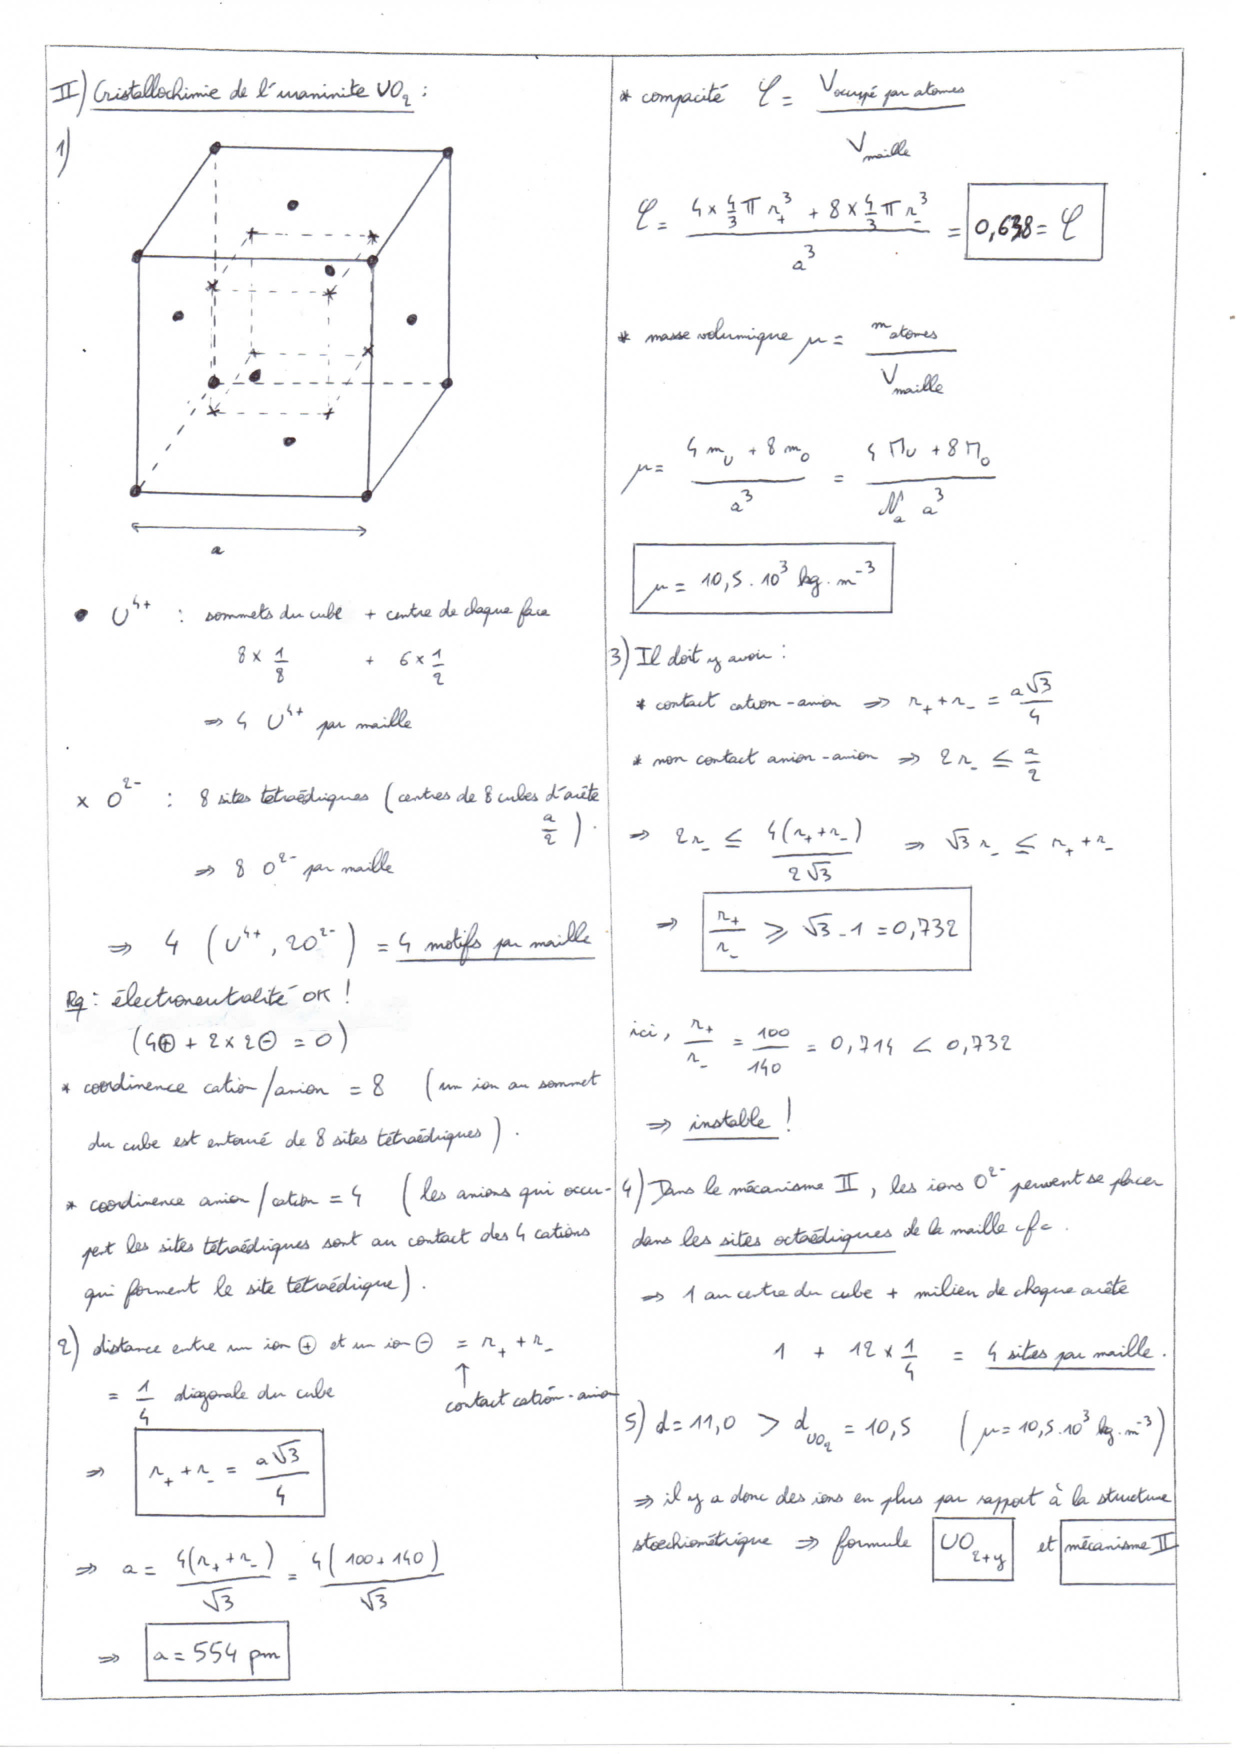 II) Cristallochimie de l'uraninite UO₂ :
1)
a
• U⁴⁺ : sommets du cube + centre de chaque face
8 × 1/8 + 6 × 1/2
⇒ 4 U⁴⁺ par maille
× O²⁻ : 8 sites tétraédriques (centres de 8 cubes d'arête
a/2).
⇒ 8 O²⁻ par maille
⇒ 4 (U⁴⁺, 2O²⁻) = 4 motifs par maille
Rq : électroneutralité OK !
(4⊕ + 2×2⊖ = 0)
* coordinence cation/anion = 8 (un ion au sommet
du cube est entouré de 8 sites tétraédriques).
* coordinence anion/cation = 4 (les anions qui occu-
pent les sites tétraédriques sont au contact des 4 cations
qui forment le site tétraédrique).
2) distance entre un ion ⊕ et un ion ⊖ = r₊ + r₋
↑
= 1/4 diagonale du cube
contact cation-anion
⇒ r₊ + r₋ = a√3/4
⇒ a = 4(r₊+r₋)/√3 = 4(100+140)/√3
⇒ a = 554 pm
* compacité φ = V occupé par atomes / V maille
φ = (4 × 4/3 π r₊³ + 8 × 4/3 π r₋³) / a³ = 0,638 = φ
* masse volumique μ = m atomes / V maille
μ = (4 m_U + 8 m_O) / a³ = (4 M_U + 8 M_O) / (N_a a³)
μ = 10,5 . 10³ kg . m⁻³
3) Il doit y avoir :
* contact cation-anion ⇒ r₊ + r₋ = a√3/4
* non contact anion-anion ⇒ 2r₋ ≤ a/2
⇒ 2r₋ ≤ 4(r₊+r₋)/2√3 ⇒ √3 r₋ ≤ r₊ + r₋
⇒ r₊/r₋ ≥ √3 - 1 = 0,732
ici, r₊/r₋ = 100/140 = 0,714 < 0,732
⇒ instable !
4) Dans le mécanisme II, les ions O²⁻ peuvent se placer
dans les sites octaédriques de la maille cfc.
⇒ 1 au centre du cube + milieu de chaque arête
1 + 12 × 1/4 = 4 sites par maille.
5) d = 11,0 > d_UO₂ = 10,5 (μ = 10,5.10³ kg.m⁻³)
⇒ il y a donc des ions en plus par rapport à la structure
stoechiométrique ⇒ formule UO₂₊y et mécanisme II